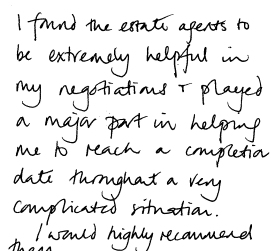 I found the estate agents to
be extremely helpful in
my negotiations + played
a major part in helping
me to reach a completion
date throughout a very
complicated situation.
I would highly recommend
them